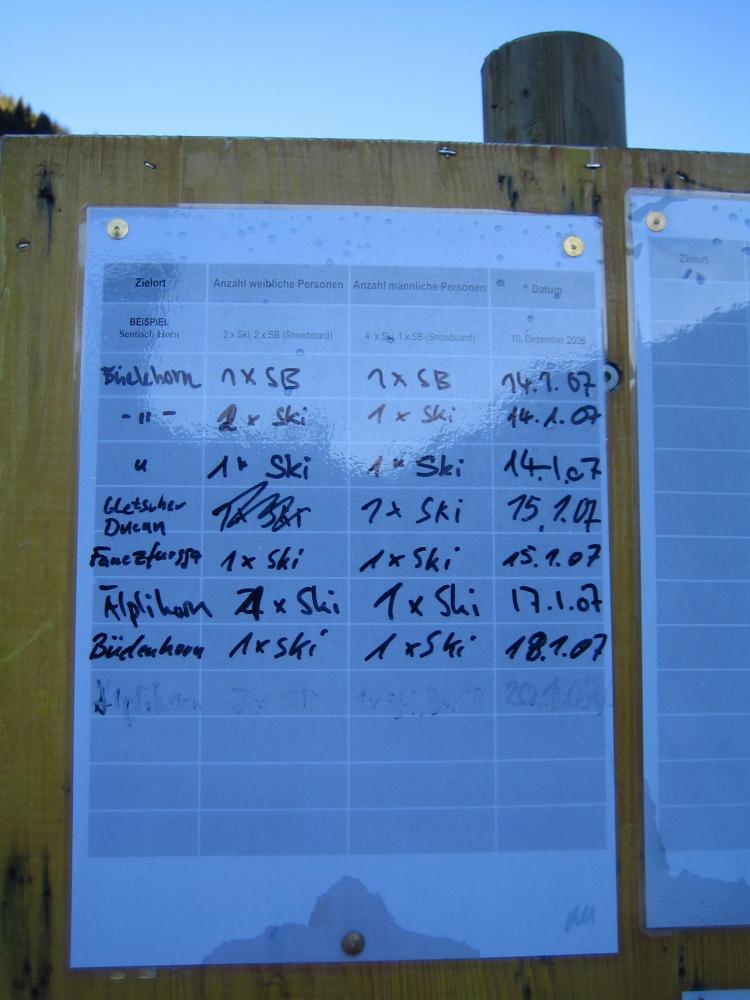 Zielort Anzahl weibliche Personen Anzahl männliche Personen Datum
BEISPIEL
Sentisch Horn 2 x Ski, 2 x SB (Snowboard) 4 x Ski, 1 x SB (Snowboard) 10. Dezember 2006
1 x SB 1 x SB 14.1.07
- " - x Ski 1 x Ski 14.1.07
" 1 x Ski 1 x Ski 14.1.07
Gletscher
Ducan 1 x Ski 15.1.07
1 x Ski 1 x Ski 15.1.07
Älplihorn x Ski 1 x Ski 17.1.07
Büelenhorn 1 x Ski 1 x Ski 18.1.07
Älplihorn
Zielort